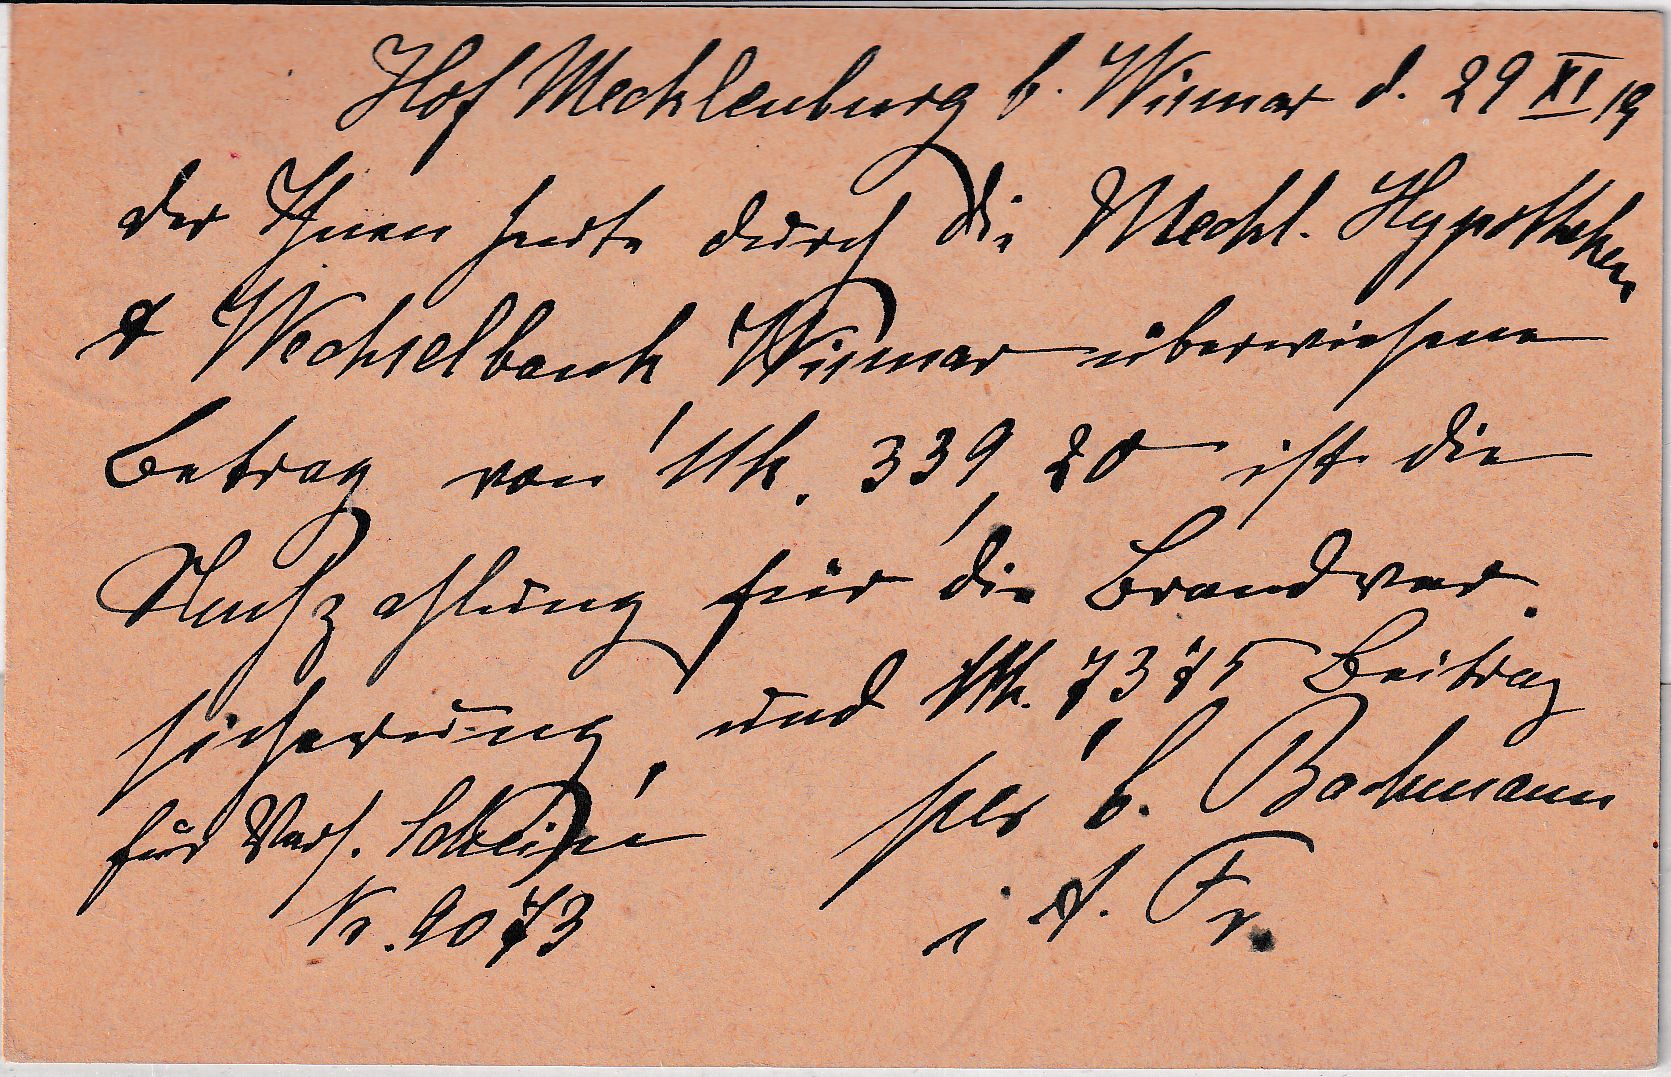 Hof Mecklenburg b. Wismar d. 29 XI 19
der Ihnen heute durch die Meckl. Hypotheken
& Wechselbank Wismar überwiesene
Betrag von Mk. 339,20 ist die
Nachzahlung für die Brandver.
sicherung, und Mk. 7375 Beitrag
für Vers. Scheine b. Bachmann
Nr. 9073 i A. Fr.